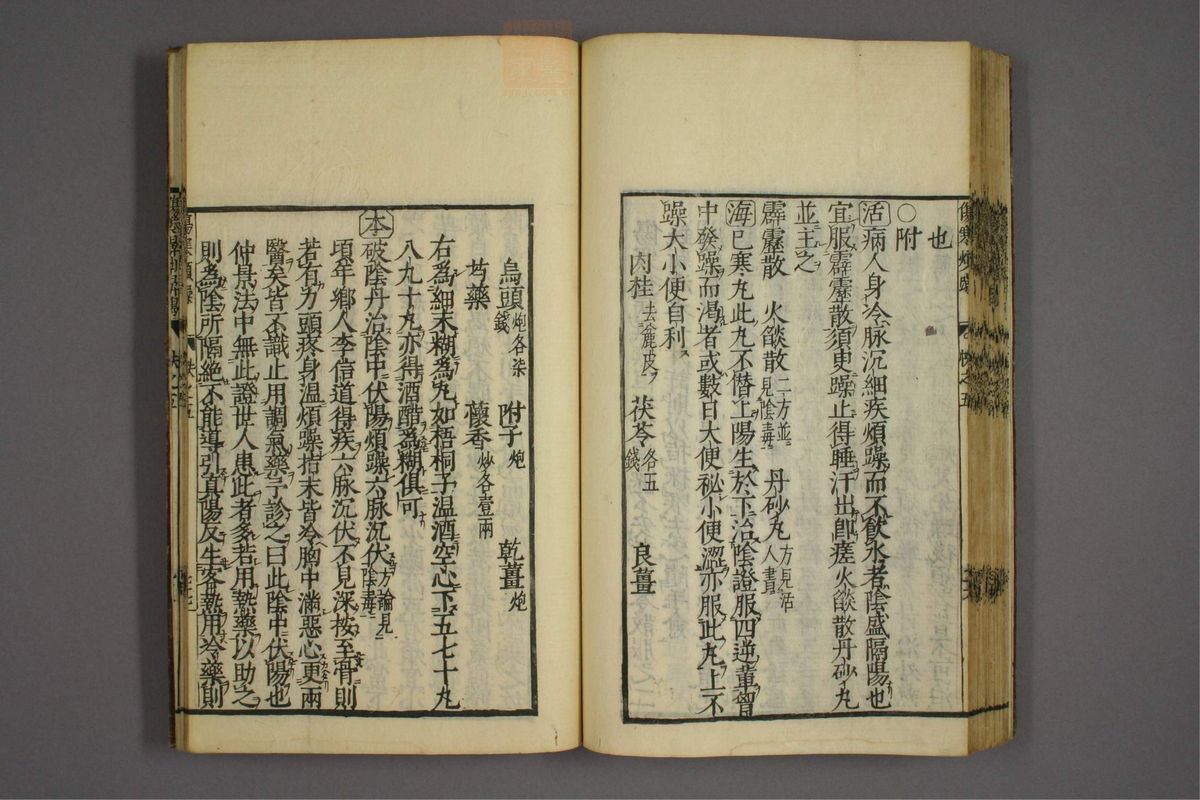 也
○附
活病人身冷脉沉細疾煩躁而不飲水者陰盛隔陽也
宜服霹靂散須臾躁止得睡汗出即瘥火燄散丹砂丸
並主之
霹靂散 火燄散二方並見陰毒 丹砂丸方見活人書
海已寒丸此丸不僣上陽生於下治陰證服四逆輩曾
中發躁而渴者或數日大便秘小便澀亦服此丸上不
躁大小便自利
肉桂去麄皮 茯苓各五錢 良薑
烏頭炮各柒錢 附子炮 乾薑炮
芍藥 蘹香炒各壹兩
右為細末糊為丸如梧桐子温酒空心下五七十丸
八九十丸亦得酒醋為糊俱可
本破陰丹治陰中伏陽煩躁六脉沉伏方論見陰毒
頃年鄉人李信道得疾六脉沉伏不見深按至骨則
若有力頭疼身温煩躁指末皆冷胸中滿惡心更兩
醫矣皆不識止用調氣藥予診之曰此陰中伏陽也
仲景法中無此證世人患此者多若用熱藥以助之
則為陰所隔絕不能導引真陽反生客熱用冷藥則